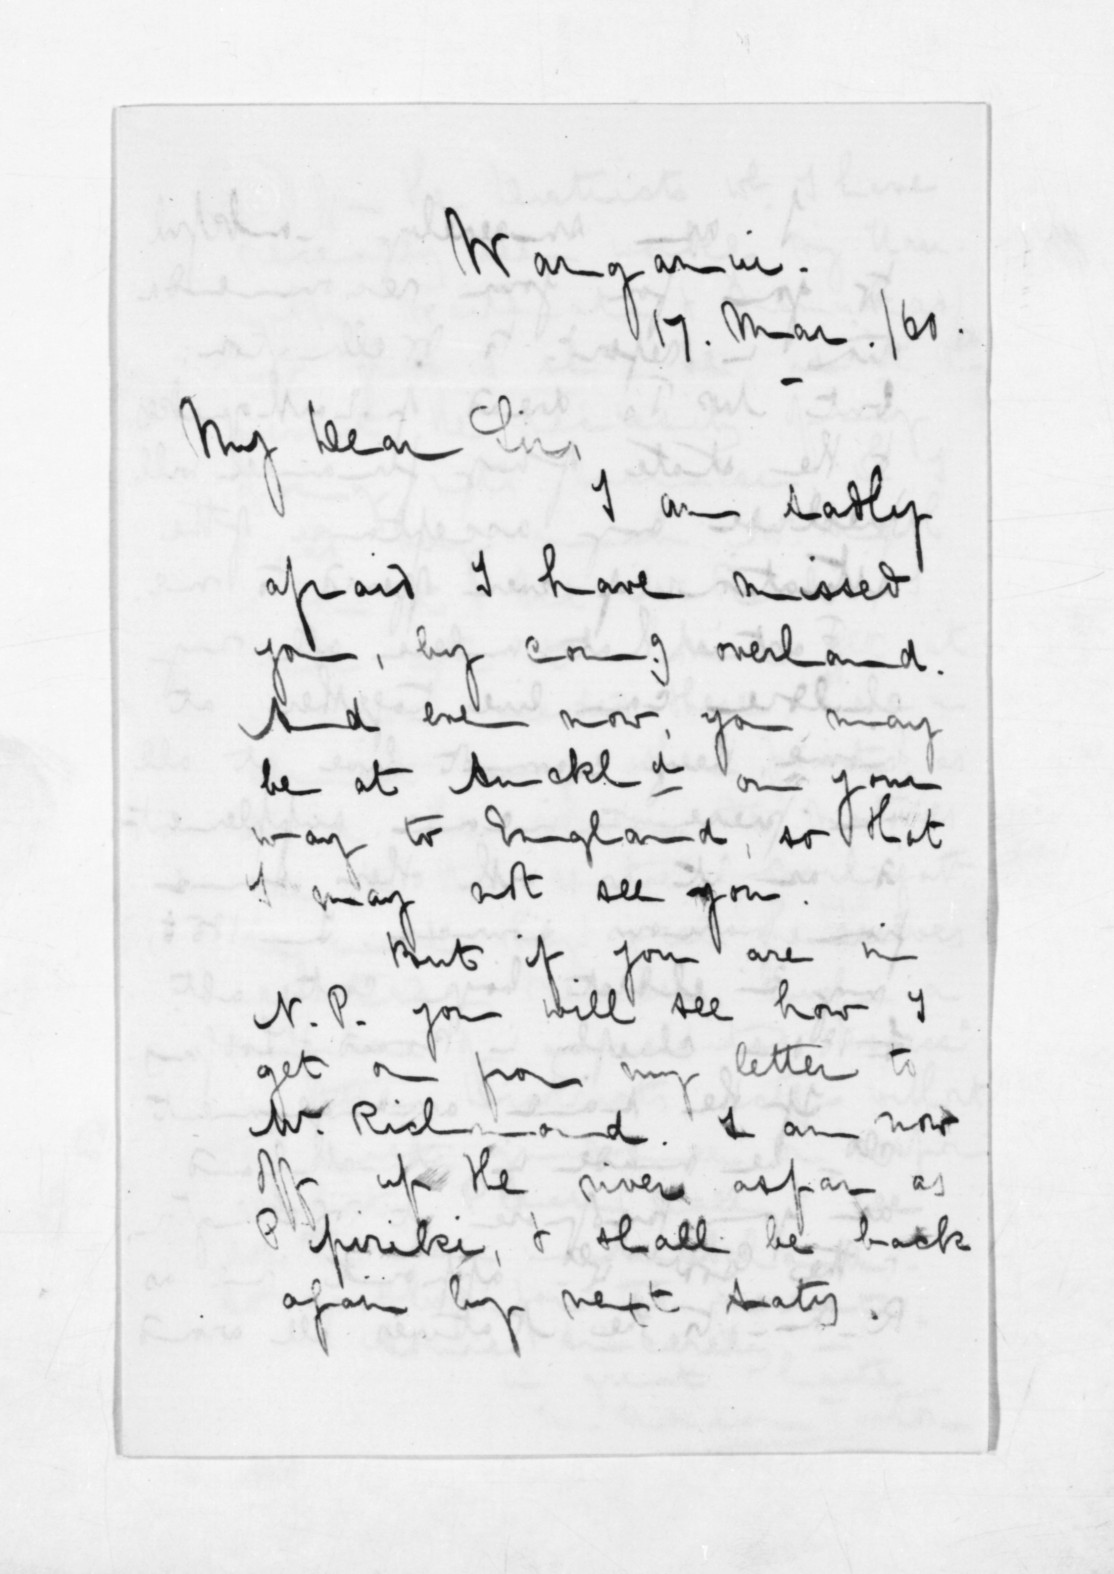 Wanganui.
17. Mar. /60.
My Dear Sir,
I am sadly
afraid I have missed
you, by comg overland.
And even now, you may
be at Auckld on your
way to England, so that
I may not see you.
But if you are in
N.P. you will see how I
get on from my letter to
Mr. Richmond. I am now
off up the river as far as
Pipiriki, & shall be back
again by next Saty.